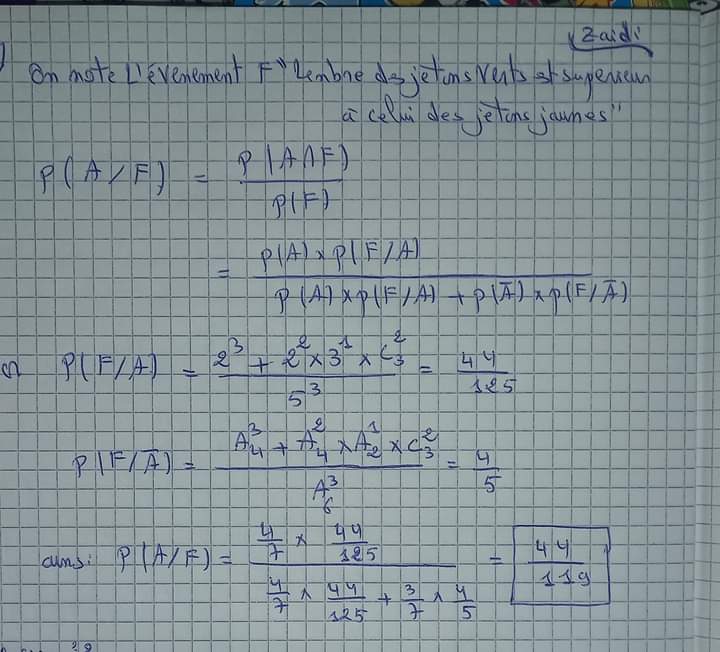 Zaidi
On note L'évenement F "Lenbre des jetons verts est superieur
à celui des jetons jaunes"
P(A/F) = P(A∩F) / P(F)
= P(A)×P(F/A) / P(A)×P(F/A) + P(Ā)×P(F/Ā)
or P(F/A) = 2³ + 2² × 3¹ × C₃² / 5³ = 44/125
P(F/Ā) = A₄³ + A₄² × A₂¹ × C₃² / A₆³ = 4/5
ainsi: P(A/F) = 4/7 × 44/125 / 4/7 × 44/125 + 3/7 × 4/5 = 44/119